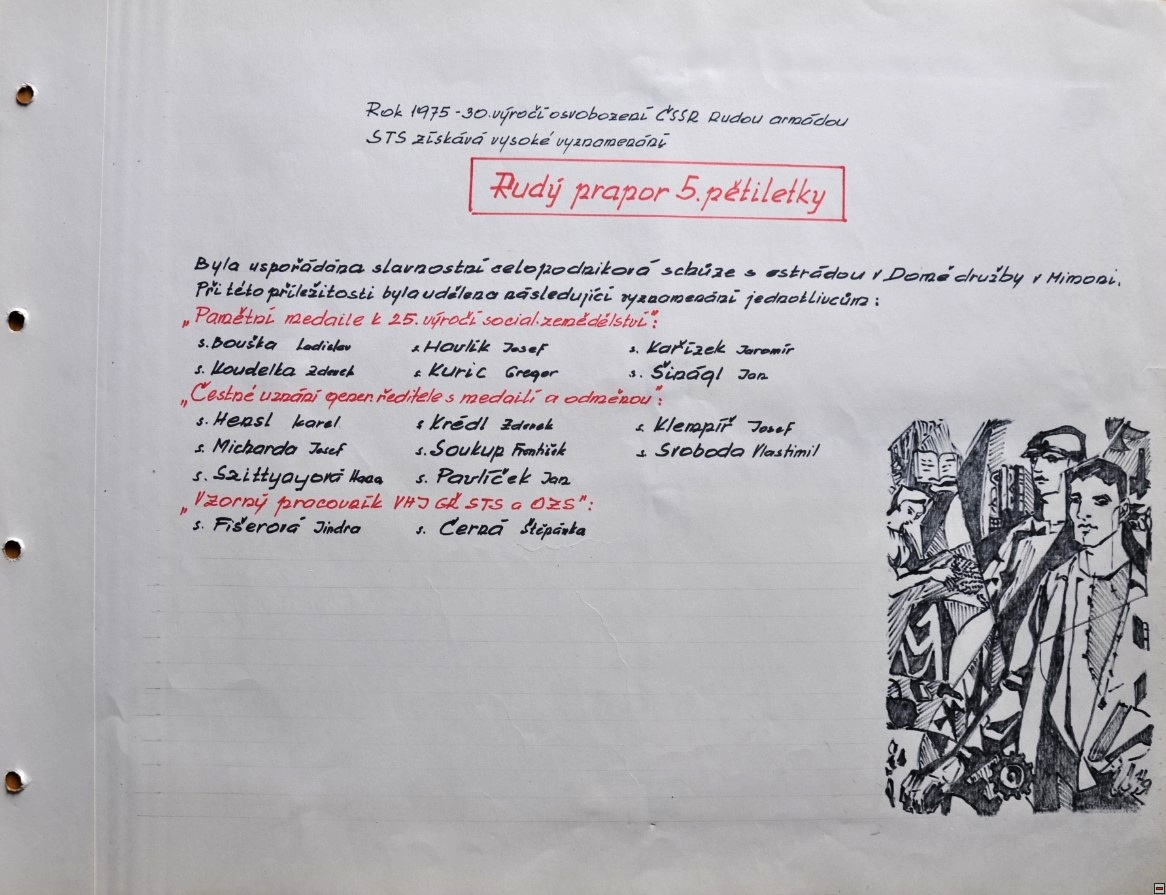 Rok 1975 - 30. výročí osvobození ČSSR Rudou armádou
STS získává vysoké vyznamenání
Rudý prapor 5. pětiletky
Byla uspořádána slavnostní celopodniková schůze s estrádou v Domě družby v Mimoni.
Při této příležitosti byla udělena následující vyznamenání jednotlivcům:
„Pamětní medaile k 25. výročí social. zemědělství":
s. Bouška Ladislav s. Havlík Josef s. Kařízek Jaromír
s. Koudelka Zdenek s. Kuric Gregor s. Šinágl Jan
„Čestné uznání gener. ředitele s medailí a odměnou":
s. Hensl Karel s. Krédl Zdenek s. Klempíř Josef
s. Micharda Josef s. Soukup František s. Svoboda Vlastimil
s. Szittyayová Hana s. Pavlíček Jan
„Vzorný pracovník VHJ GŘ STS a OZS":
s. Fišerová Jindra s. Černá Štěpánka